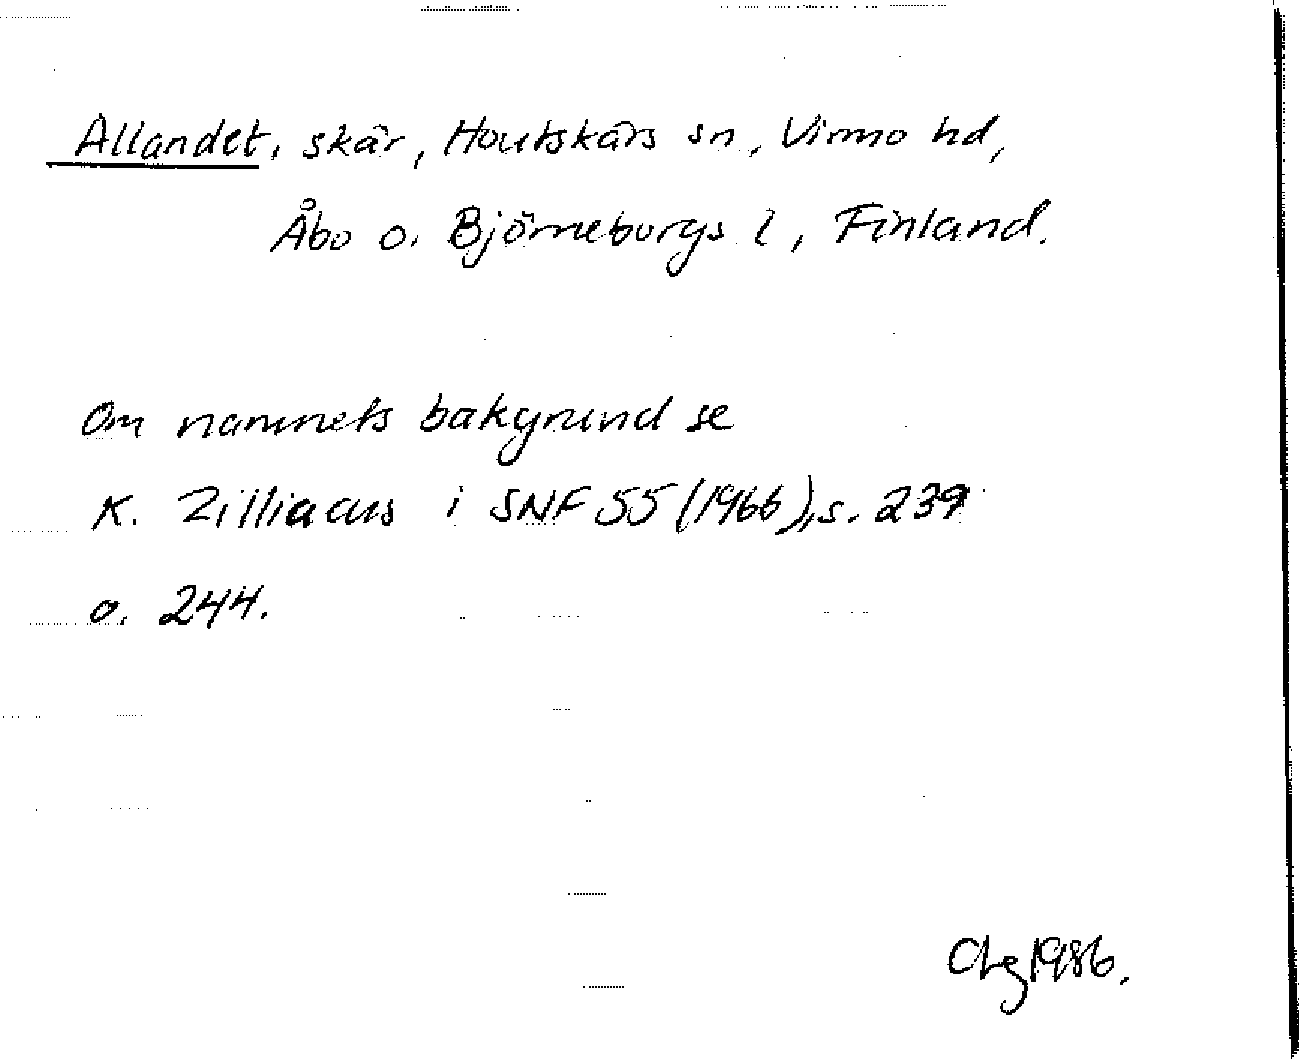 Allandet, skär, Houtskärs sn, Virmo hd,
Åbo o. Björneborgs l, Finland.
Om namnets bakgrund se
K. Zilliacus i SNF 55 (1966), s. 239
o. 244.
1986.